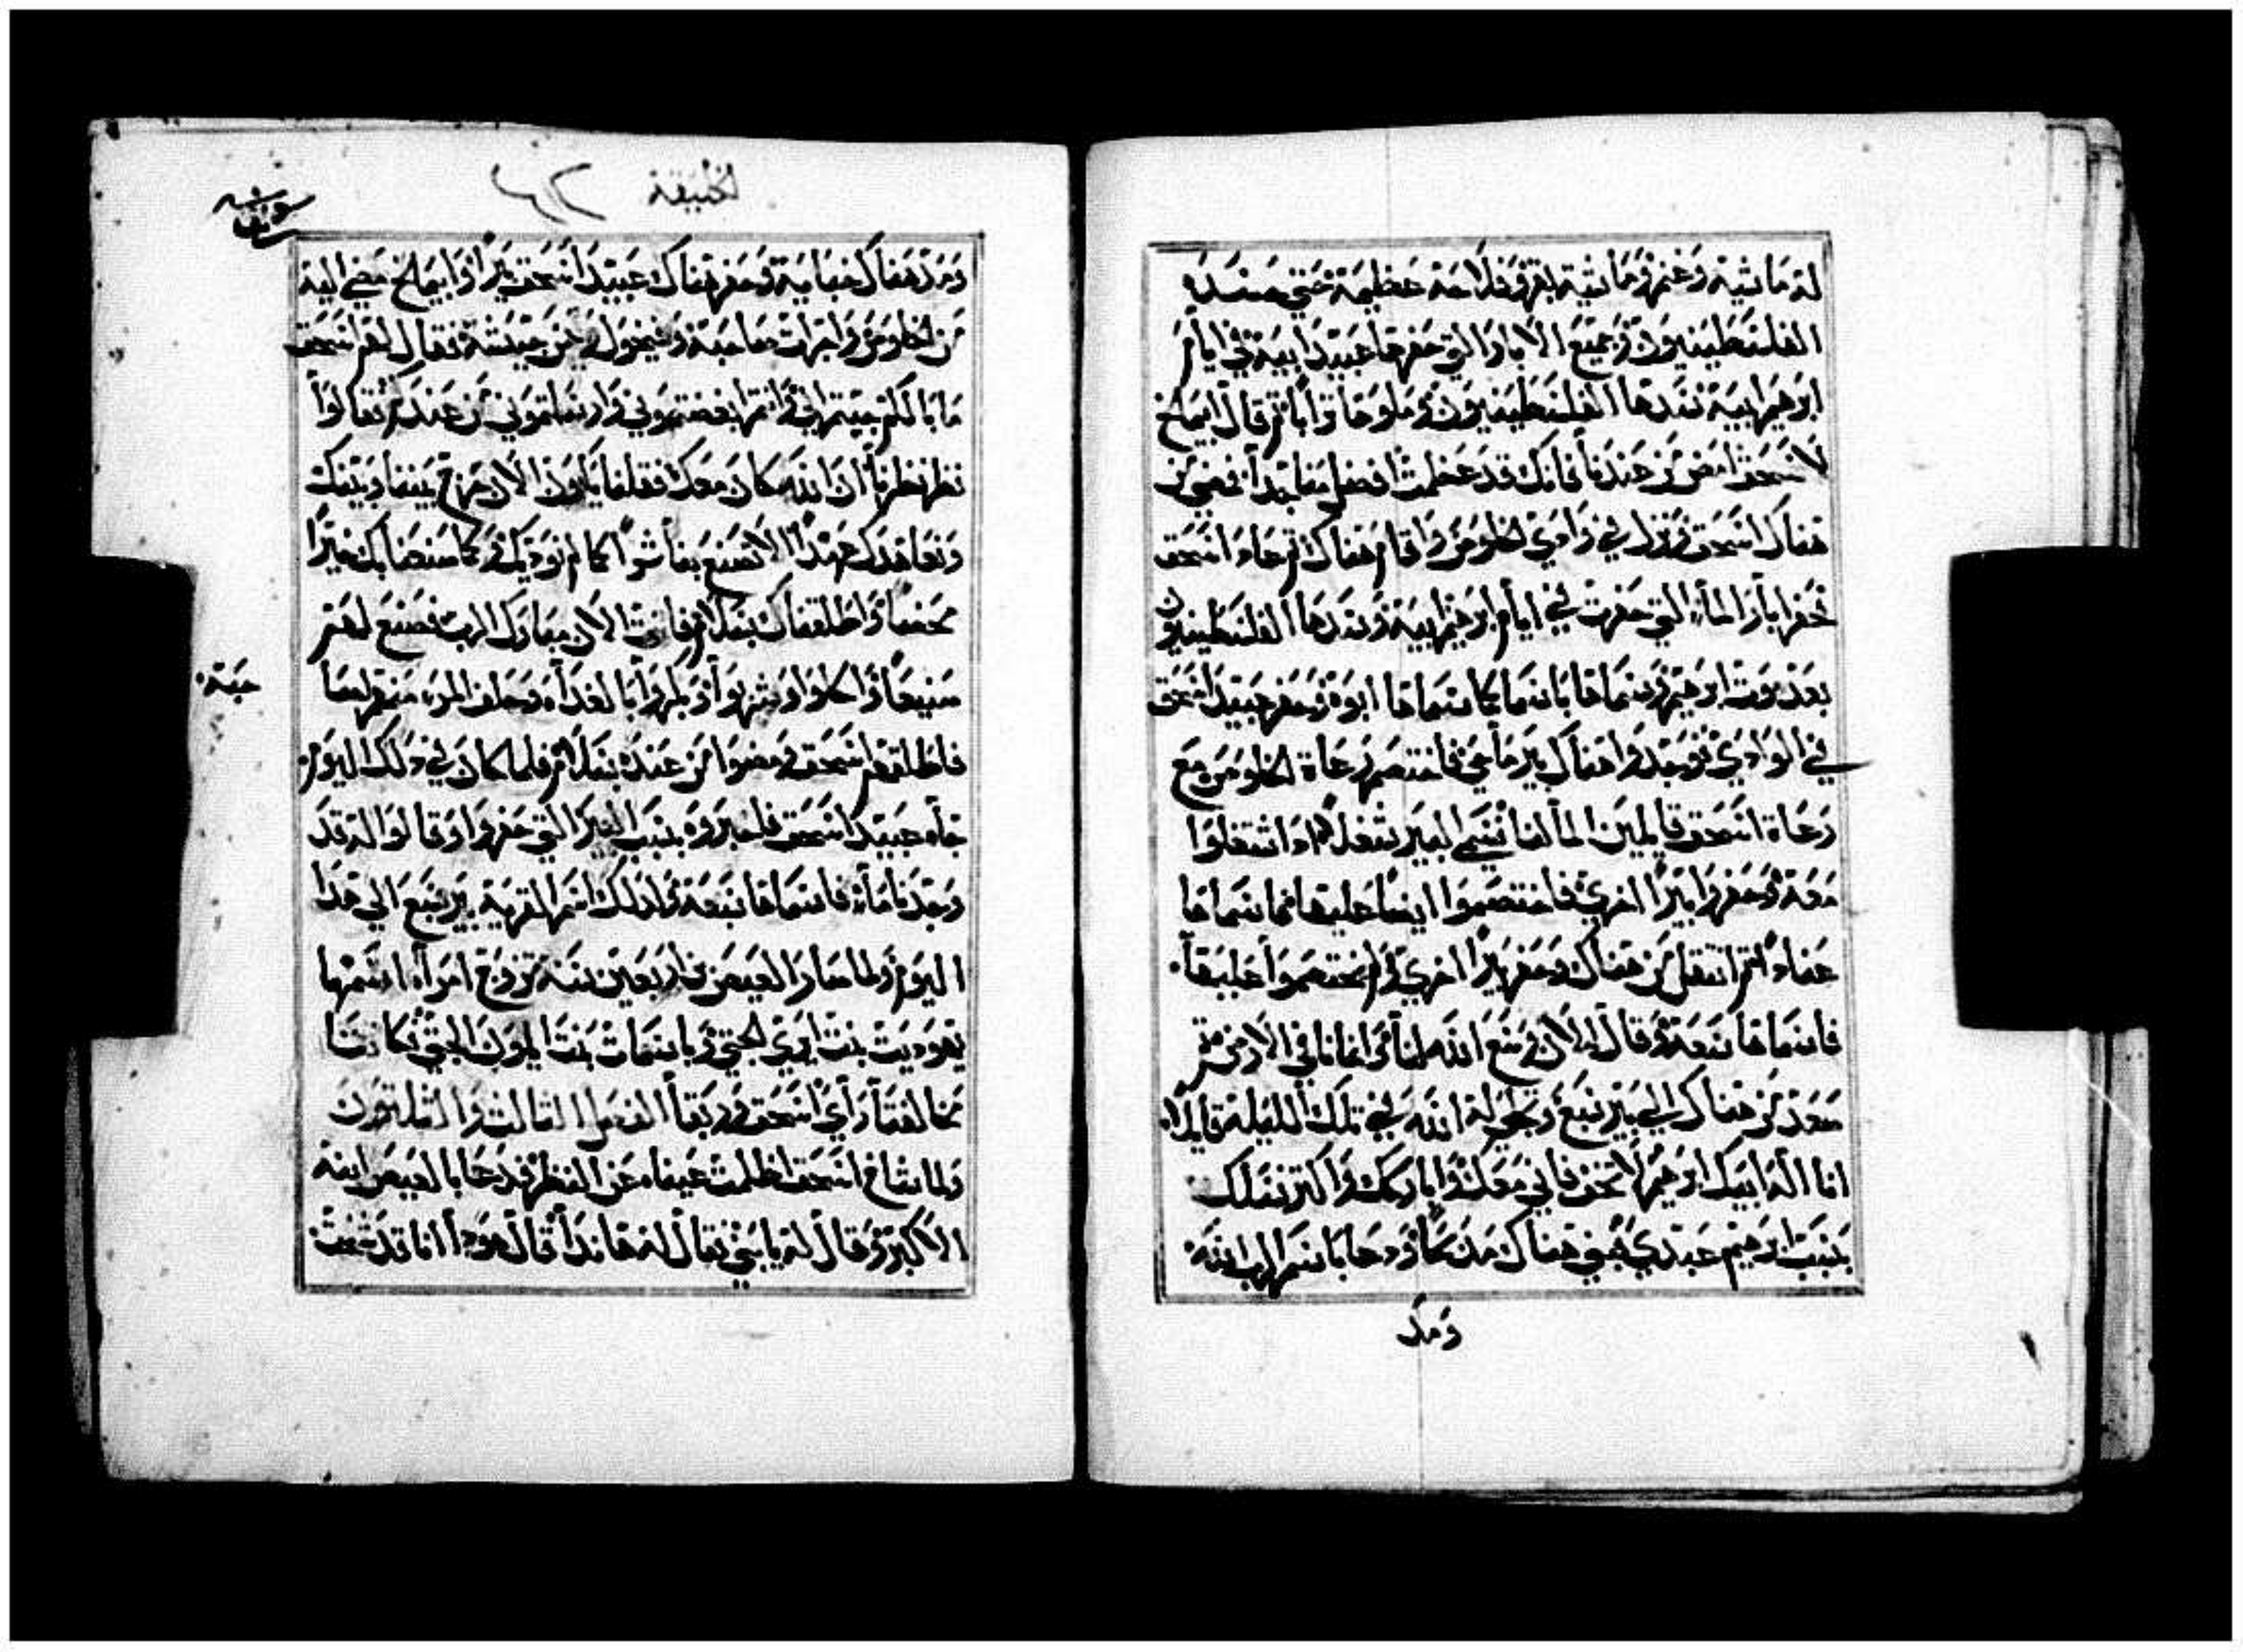 له ماشية وغنم وماشية بقر وفلاحة عظيمة حتى حسده
الفلسطينيون وجميع الابار التي حفرها عبيد ابيه في ايام
ابرهيم ابيه سدها الفلسطينيون وملوها ترابا ثم قال ابيمالخ
لاسحق امض من عندنا فانك قد عظمت افضل منا جدا فمضى من
هناك اسحق ونزل في وادي الخلوص واقام هناك ثم عاد اسحق
فحفر ابار الماء التي حفرت في ايام ابرهيم ابيه وسدها الفلسطينيون
بعد موت ابرهيم وسماها باسما كما سماها ابوه وحفر عبيد اسحق
في الوادي فوجدوا هناك بير ما حي فاختصم رعاة الخلوص مع
رعاة اسحق قايلين الما لنا فسمى البير شغلا اذ اشتغلوا
معه وحفروا بيرا اخري فاختصموا ايضا عليها فاسماها
عنادا ثم انتقل من هناك وحفر بيرا اخري ولم يختصموا عليها
فاسماها سعة وقال الان وسع الله لنا وانمانا في الارض ثم
صعد من هناك الي بير سبع وتجلى له الله في تلك الليلة قايلا
انا اله ابيك ابرهيم لا تخف فاني معك وابارك واكثر نسلك
بسبب ابرهيم عبدي فبنى هناك مذبحا ودعا باسم الرب الله
ومد
الخليقة ٦٢
ومد هناك خباية وحفر هناك عبيد اسحق بيرا وابيمالخ مضي اليه
من الخلوص واخزات صاحبه وفيخول رييس جيشه فقال لهم اسحق
ما بالكم جيتم الي وانتم ابغضتموني وارسلتموني من عندكم فقالوا
نظر نظرنا ان الله كان معك فقلنا يكون الان حرج بيننا وبينك
ونعاهدك عهدا الا تصنع بنا شرا كما لم نوذيك وكما صنعنا بك خيرا
محضا واطلقناك بسلام فانت الان مبارك الرب فصنع لهم
صنيعا واكلوا وشربوا وبكروا بالغداه وحلف المرء منهم لصاحبه
فاطلقهم اسحق ومضوا من عنده بسلام فلما كان في ذلك اليوم
جاء عبيد اسحق فاخبروه بسبب البير التي حفروا وقالوا له قد
وجدنا ماء فاسماها سبعة ولذلك اسم القرية بير سبع الي هذا
اليوم ولما صار العيص بن اربعين سنه تزوج امراة اسمها
يهوديت بنت ابري الحيثي وباسمات بنت ايلون الحيثي فكانتا
مخالفتا راي اسحق وربقا الفصل الثالث والثلثون
ولما شاخ اسحق اظلمت عيناه عن النظر فدعا بالعيص ابنه
الاكبر وقال له يا بني فقال له هانذا قال هوذا انا قد شخت